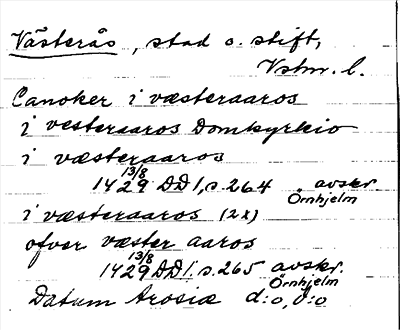 Västerås, stad o. stift,
Vstm. l.
Canoker i væsteraaros
i vesteraaros Domkyrkio
i væsteraaros
13/8
1429 DD 1, s. 264 avskr. Örnhjelm
i væsteraaros (2x)
ofver væster aaros
13/8
1429 DD 1. s. 265 avskr. Örnhjelm
Datum Arosiæ d:o, d:o